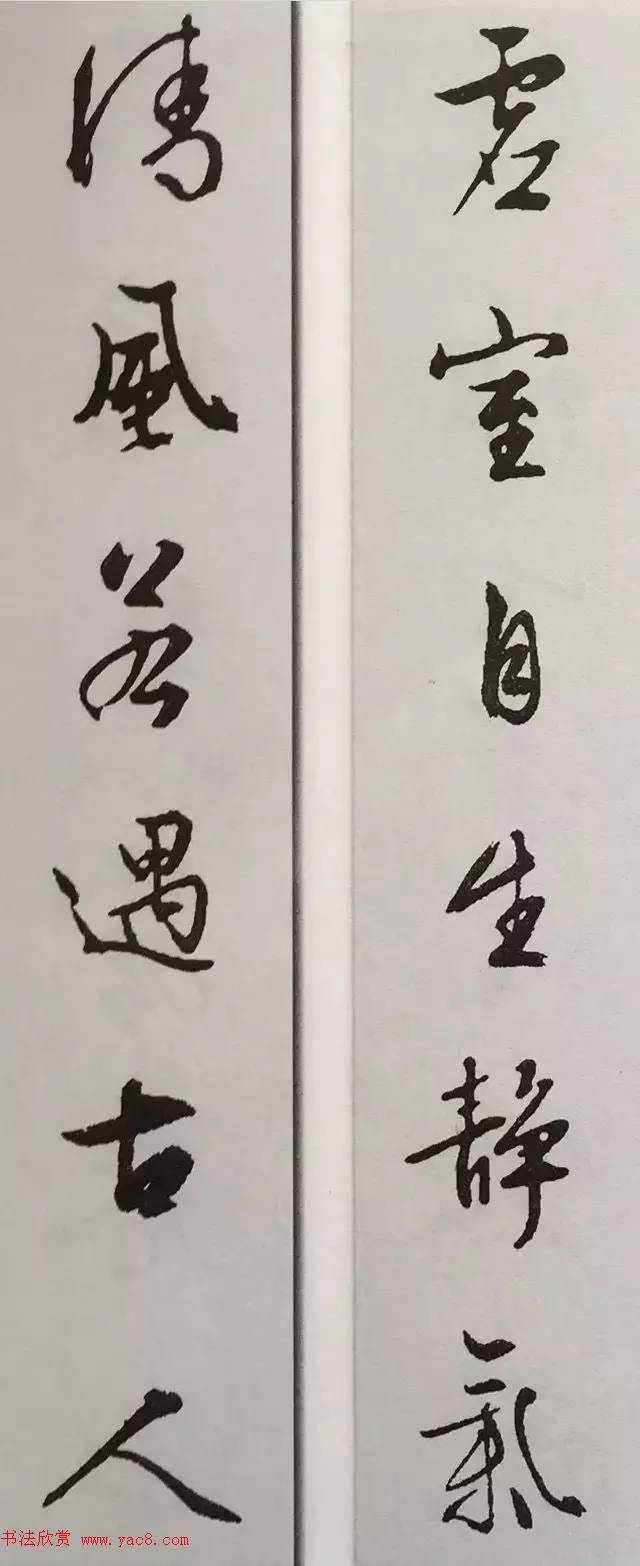 虚室自生静氣
清風若遇古人
书法欣赏 www.yac8.com